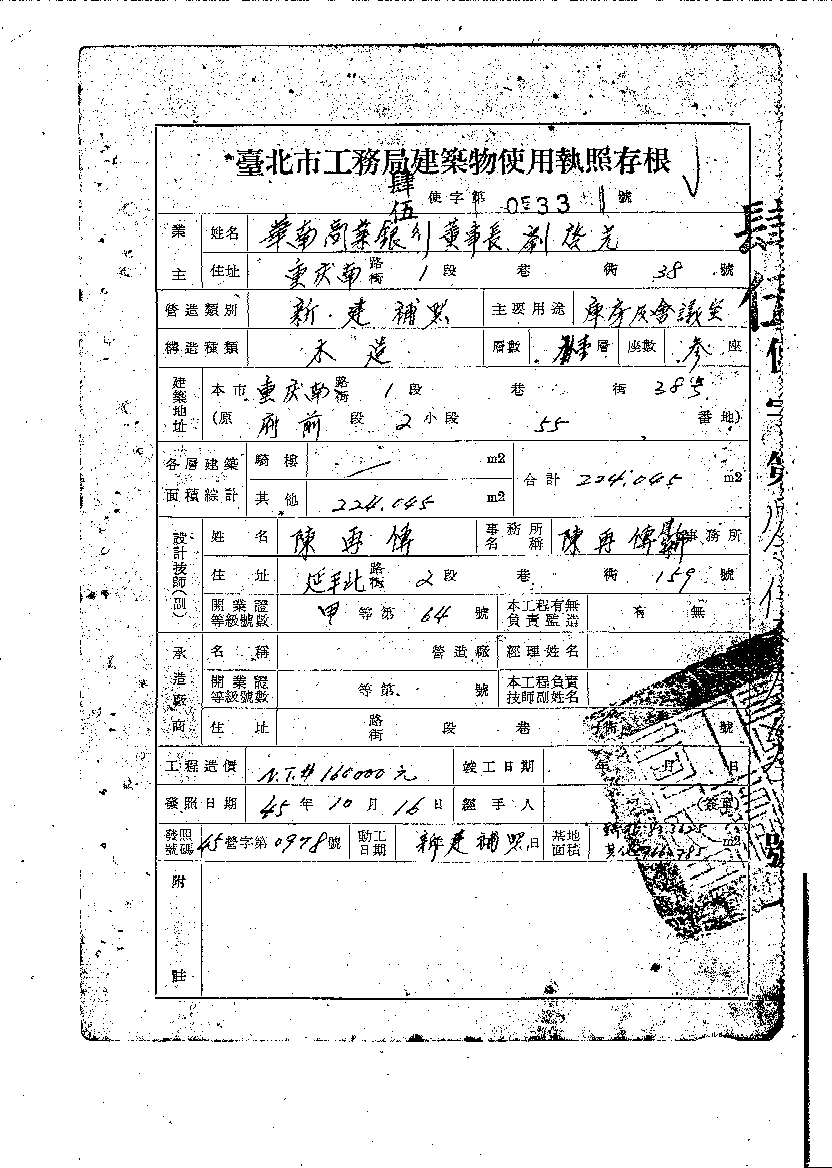 臺北市工務局建築物使用執照存根
肆伍 使字第 0533 號
業主 姓名 華南商業銀行董事長 劉啓光
住址 重庆南 路街 1 段 巷 衖 38 號
營造類別 新建補照 主要用途 庫房及會議室
構造種類 木造 層數 層 座數 参 座
建築地址 本市 重庆南 路街 1 段 巷 衖 38号
(原 府前 段 2 小段 55 番地)
各層建築面積綜計 騎樓 — m2 合計 224.045 m2
其他 224.045 m2
設計技師(副) 姓名 陳再傳 事務所名稱 陳再傳 事務所
住址 延平北 路街 2 段 巷 衖 159 號
開業證等級號數 甲 等第 64 號 本工程有無負責監造 有 無
承造廠商 名稱 營造廠 經理姓名
開業證等級號數 等第 號 本工程負責技師副姓名
住址 路街 段 巷 衖 號
工程造價 N.T.# 160000元 竣工日期 年 月 日
發照日期 45 年 10 月 16 日 經手人 (簽單)
發照號碼 45 營字第 0978 號 動工日期 新建補照 日 基地面積 m2
附註
肆伍使字第 號